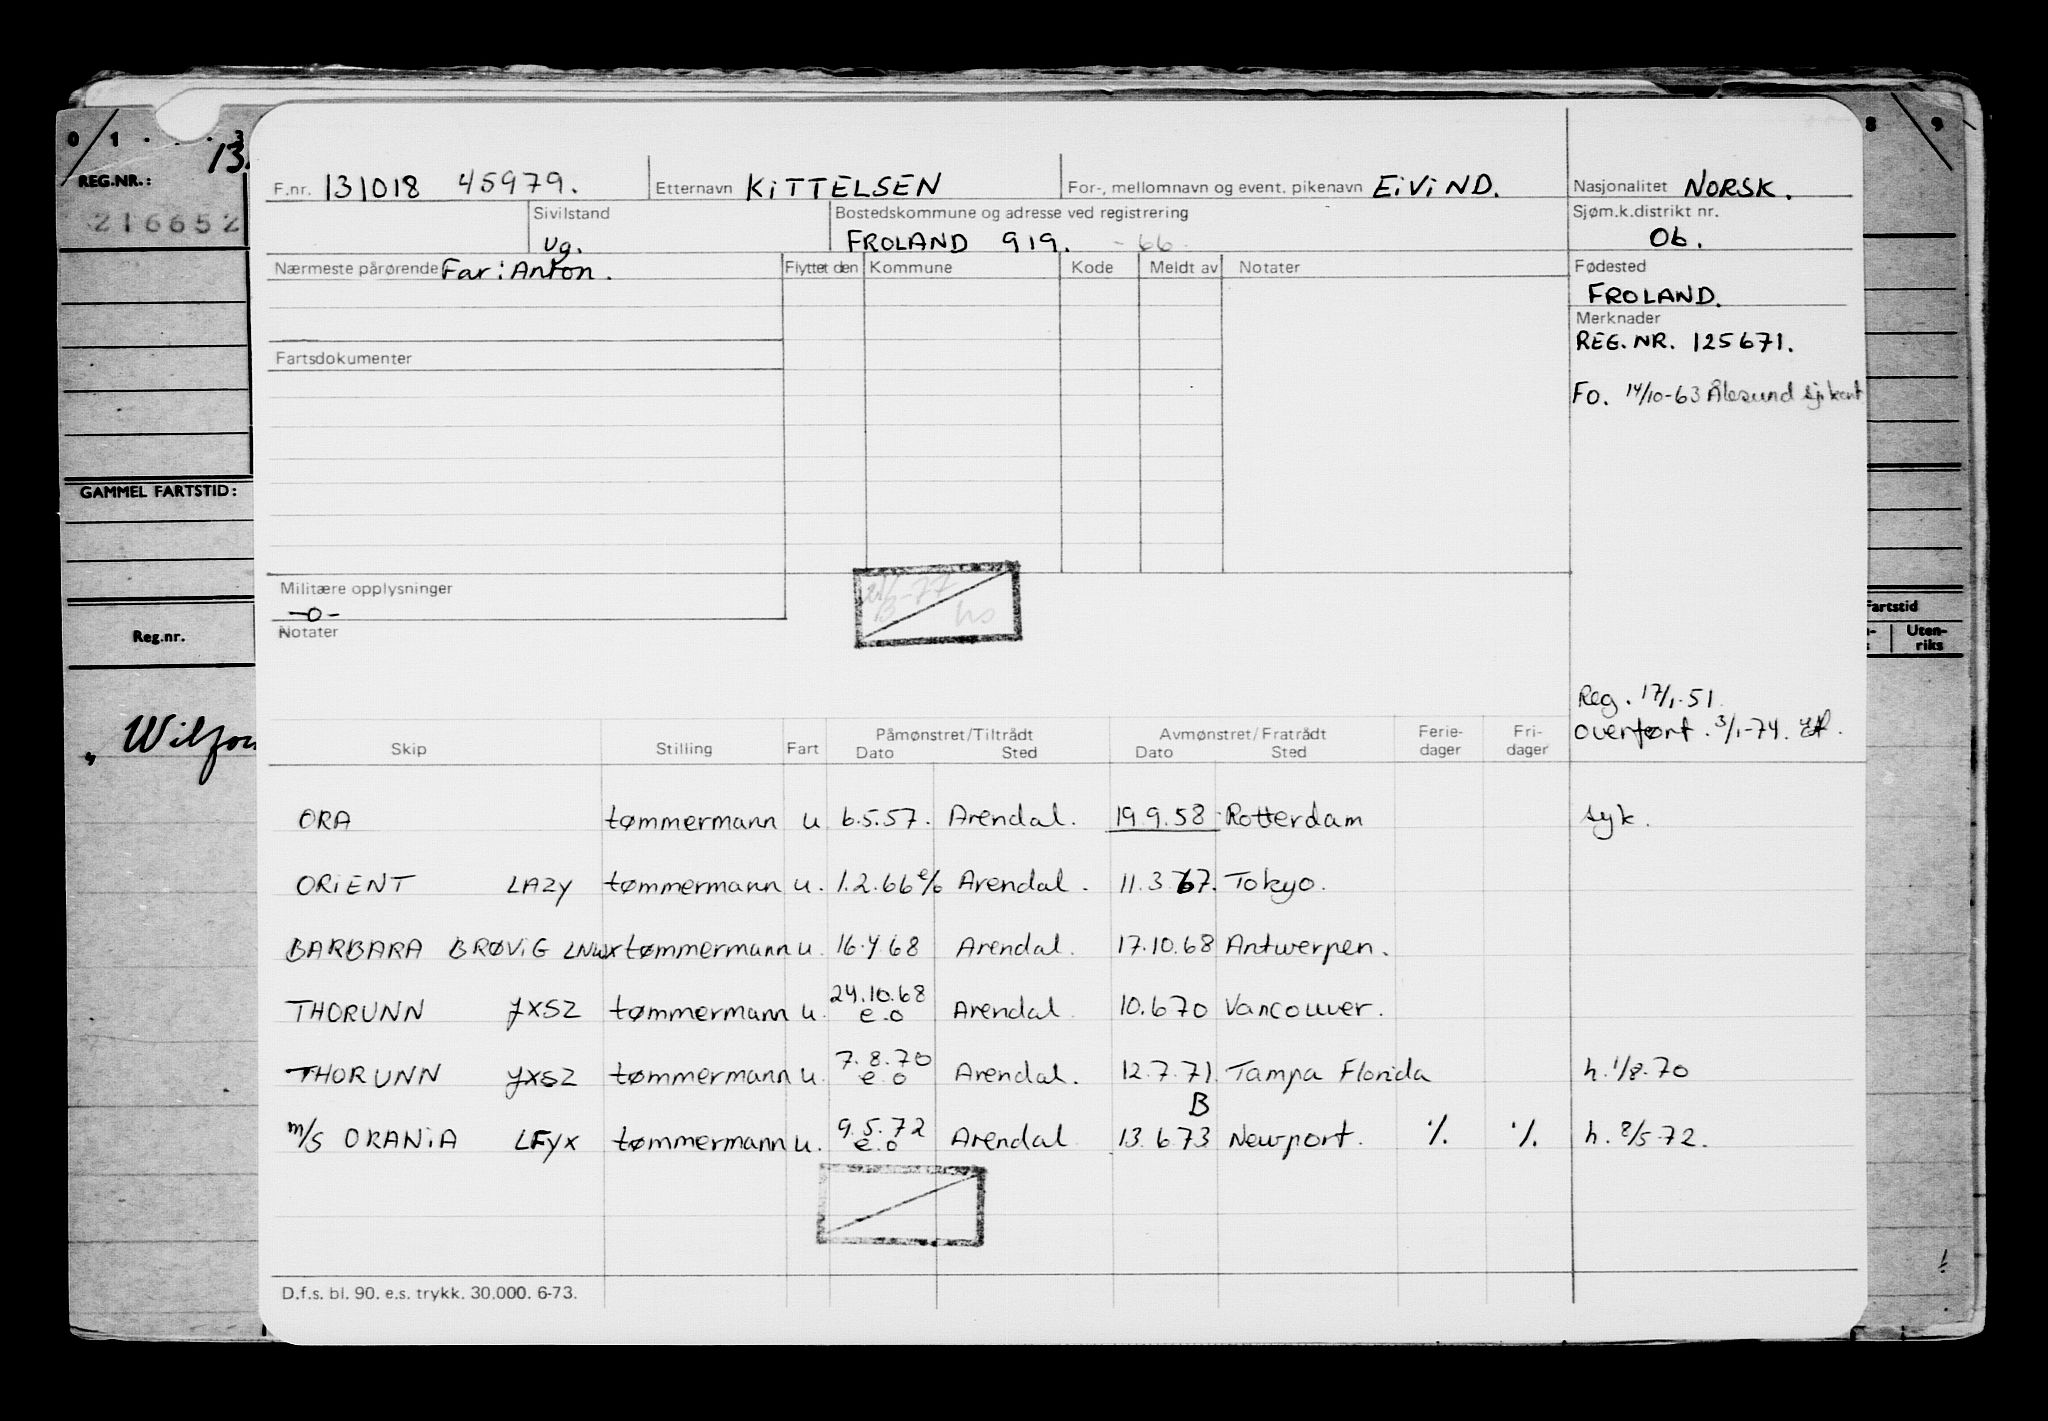 0 1 3 8 9
13.
REG.NR.:
216652
F.nr. 131018 45979. Etternavn KITTELSEN For-, mellomnavn og event. pikenavn EIVIND. Nasjonalitet NORSK.
Sivilstand Bostedskommune og adresse ved registrering Sjøm.k.distrikt nr.
ug. FROLAND 919. -66. 06.
Nærmeste pårørende Far: Anton. Flyttet den Kommune Kode Meldt av Notater Fødested
FROLAND.
Merknader
REG.NR. 125671.
Fartsdokumenter
FO. 14/10-63 Ålesund
GAMMEL FARTSTID:
Militære opplysninger
-0-
Notater
Reg.nr.
Fartstid
Uten-
riks
Reg. 17/1-51.
overført. 3/1-74.
Skip Stilling Fart Påmønstret/Tiltrådt Avmønstret/Fratrådt Ferie- Fri-
Dato Sted Dato Sted dager dager
ORA tømmermann u 6.5.57. Arendal. 19.9.58 Rotterdam syk.
ORIENT LAZY tømmermann u. 1.2.66 e/o Arendal. 11.3.67. Tokyo.
BARBARA BRØVIG LNWX tømmermann u. 16.4 68 Arendal. 17.10.68 Antwerpen.
THORUNN JXSZ tømmermann u. 24.10.68 e.o Arendal 10.6 70 Vancouver.
THORUNN JXSZ tømmermann u. 7.8.70 e.o Arendal. 12.7.71 Tampa Florida h. 1/8.70
B
m/s ORANIA LFYX tømmermann u. 9.5.72 e.o Arendal 13.6 73 Newport. % % h. 8/5-72.
D.f.s. bl. 90. e.s. trykk. 30.000. 6-73.